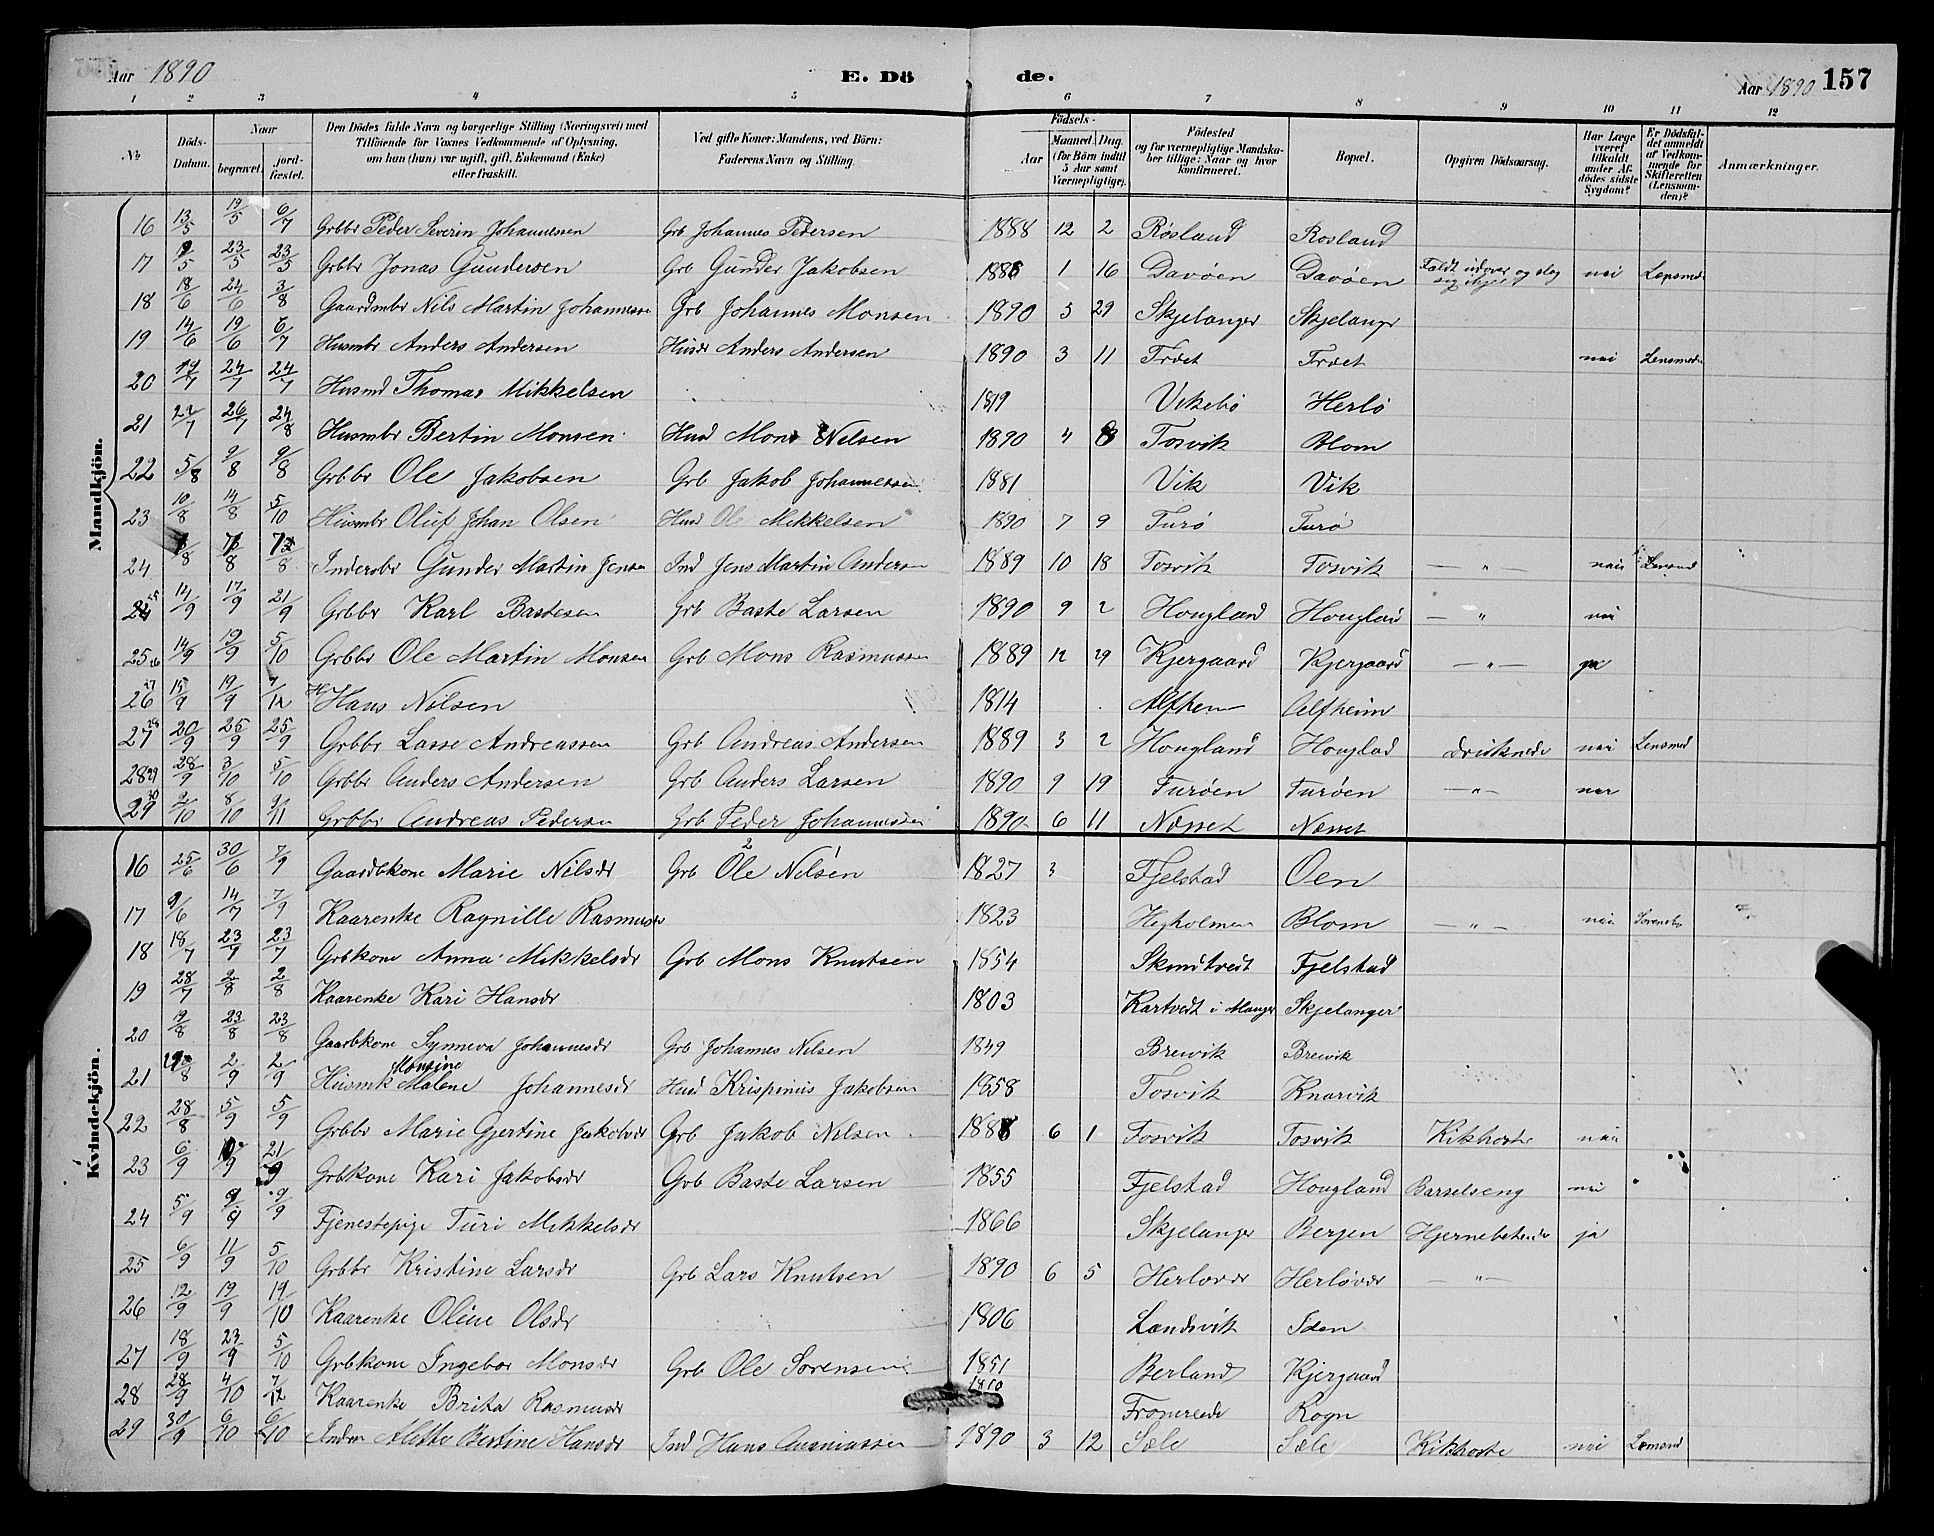 Aar 1890 E. Dö de. Aar 1890 157
1 2 3 4 5 6 7 8 9 10 11 12
No. Döds-Datum. Naar begravet. jordfæstet. Den Dödes fulde Navn og borgerlige Stilling (Næringsvei) med Tilföiende for Voxnes Vedkommende af Oplysning, om han (hun) var ugift, gift, Enkemand (Enke) eller fraskilt. Ved gifte Koner: Mandens, ved Börn: Faderens Navn og Stilling. Födsels- Aar Maaned Dag (for Börn indtil 5 Aar samt Værnepligtige). Födested og for værnepligtige Mandskaber tillige: Naar og hvor konfirmeret. Bopæl. Opgiven Dödsaarsag. Har Læge været tilkaldt under Afdödes sidste Sygdom? Er Dödsfaldet anmeldt af Vedkommende for Skifteretten (Lensmanden)? Anmærkninger.
Mandkjön.
16 13/5 19/5 6/7 Grbbr Peder Severin Johannessen Grb Johannes Pedersen 1888 12 2 Rosland Rosland
17 9/5 23/5 23/5 Grbbr Jonas Gundersen Grb Gunder Jakobsen 1886 1 16 Davøen Davøen Faldt udover og slog sig ihjel nei Lensmd
18 18/6 24/6 3/8 Gaardmbr Nils Martin Johannessen Grb Johannes Monsen 1890 5 29 Skjelanger Skjelanger
19 14/6 19/6 6/7 Husmbr Anders Andersen Husm Anders Andersen 1890 3 11 Træt Træt nei Lensmd
20 19/7 24/7 24/7 Husmd Thomas Mikkelsen 1819 Vikebø Herlø
21 22/7 26/7 24/8 Husmbr Bertin Monsen Husd Mons Nelsen 1890 4 8 Tosvik Blom
22 5/8 9/8 9/8 Grbbr Ole Jakobsen Grb Jakob Johannessen 1881 Vik Vik
23 10/8 14/8 5/10 Husmbr Oluf Johan Olsen Husd Ole Mikkelsen 1890 7 9 Turø Turø
24 Indersbr Gunder Martin Jensen Ind Jens Martin Andersen 1889 10 18 Tosvik Tosvik — " — nei Lensmd
25 14/9 17/9 21/9 Grbbr Karl Bastesen Grb Baste Larsen 1890 9 2 Hougland Hougland — " nei
25 26 14/9 19/9 5/10 Grbbr Ole Martin Monsen Grb Mons Rasmussen 1889 12 29 Kjergaard Kjergaard — " — ja
26 27 15/9 19/9 7/12 Hans Nilsen 1814 Alfhem Alfheim
27 28 20/9 25/9 25/9 Grbbr Lasse Andreassen Grb Andreas Andersen 1889 3 2 Hougland Houglad Druknede nei Lensmd
28 29 28/9 3/10 5/10 Grbbr Anders Andersen Grb Anders Larsen 1890 9 19 Turøen Turøen — " — nei
29 30 2/10 8/10 9/11 Grbbr Andreas Pedersen Grb Peder Johannessen 1890 6 11 Næsset Næsset
Kvindekjön.
16 25/6 30/6 7/9 Gaardbkone Marie Nilsdr Grb Ole Nilsen 1827 3 Fjelstad Oen
17 9/6 14/7 7/9 Kaarenke Ragnille Rasmusdr 1823 Hejholmen Blom — " — nei
18 18/7 23/9 23/7 Grbkone Anna Mikkelsdr Grb Mons Knutsen 1854 Skudtvedt Fjelstad
19 28/7 2/8 2/8 Kaarenke Kari Hansdr 1803 Kartvedt i Manger Skjelanger
20 19/8 23/8 23/8 Gaardbkone Synneva Johannesdr Grb Johannes Nilsen 1849 Breivik Breivik
21 2/9 2/9 Husmk Malene Monsine Johannesdr Husd Krispinus Jakobsen 1858 Tosvik Knarvik
22 28/8 5/9 5/9 Grbbr Marie Gjertine Jakobsdr Grb Jakob Nilsen 1888 6 1 Tosvik Tosvik Kikhoste nei
23 6/9 10/9 21/9 Grbkone Kari Jakobsdr Grb Baste Larsen 1855 Fjelstad Hougland Barselseng nei "
24 5/9 9/9 9/9 Tjenestepige Turi Mikkelsdr 1866 Skjelanger Bergen ja
25 6/9 11/9 5/10 Grbbr Kristine Larsdr Grb Lars Knutsen 1890 6 5 Herløvær Herløvær — " —
26 12/9 19/9 19/10 Kaarenke Oline Olsdr 1806 Landsvik
27 18/9 23/9 5/10 Grbkone Ingebor Monsdr Grb Ole Sørensen 1851 Berland Kjergaard
28 28/9 4/10 7/12 Kaarenke Brita Rasmusdr 1810 Fromreide Rogn
29 30/9 6/10 6/10 Aletta Bertine Hansdr Ind Hans Ananiassen 1890 3 12 Sæle Sæle Kikhoste nei Lensmd